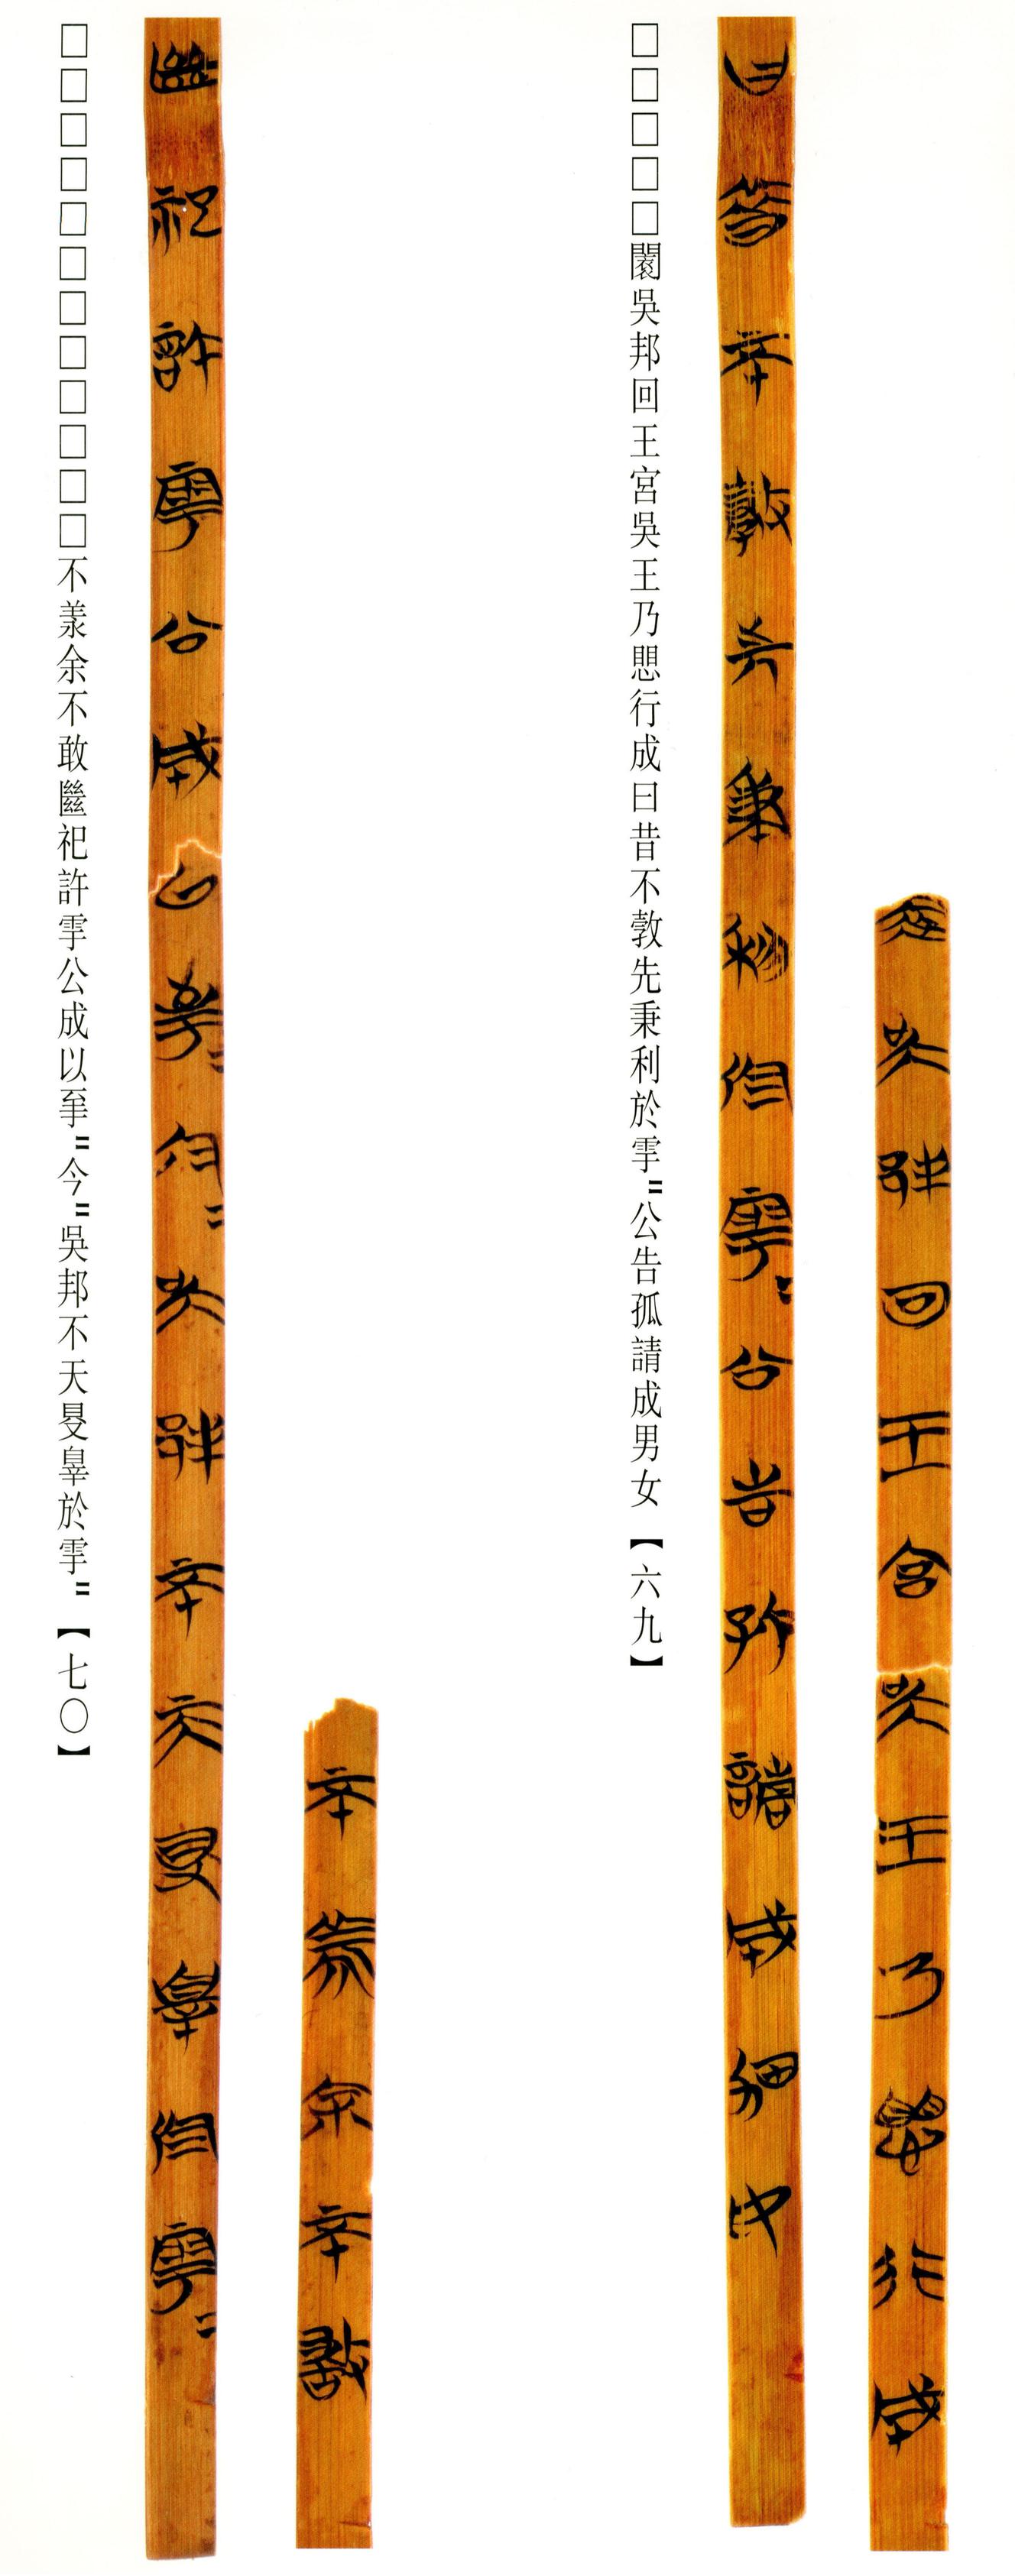 □□□□□闤吳邦回王宮吳王乃思行成曰昔不敦先秉利於雩〓公告孤請成男女【六九】
□□□□□□□□□□□□不羕余不敢㡭祀許雩公成以至〓今〓吳邦不天旻辠於雩〓【七〇】